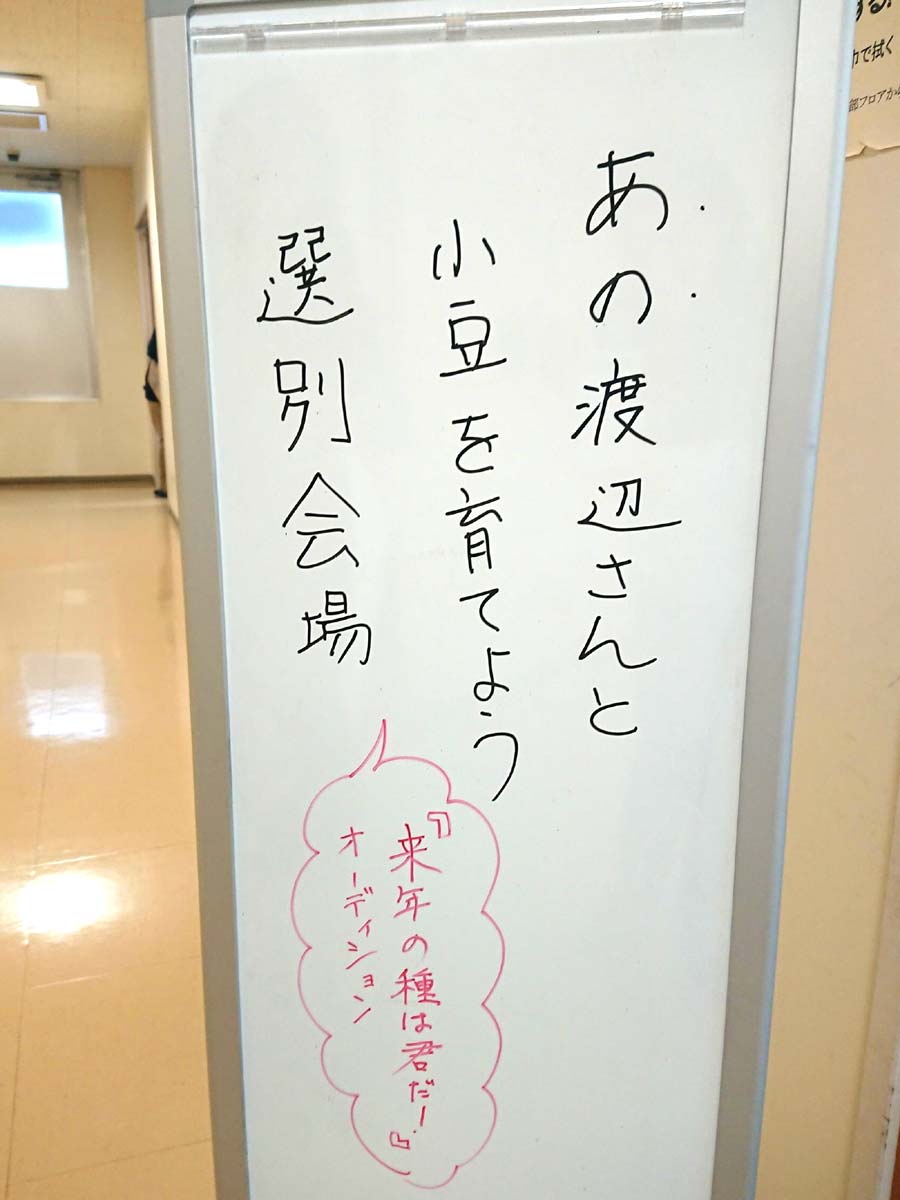 あの渡辺さんと
小豆を育てよう
選別会場
『来年の種は君だ!』
オーディション
で拭く
部フロアか